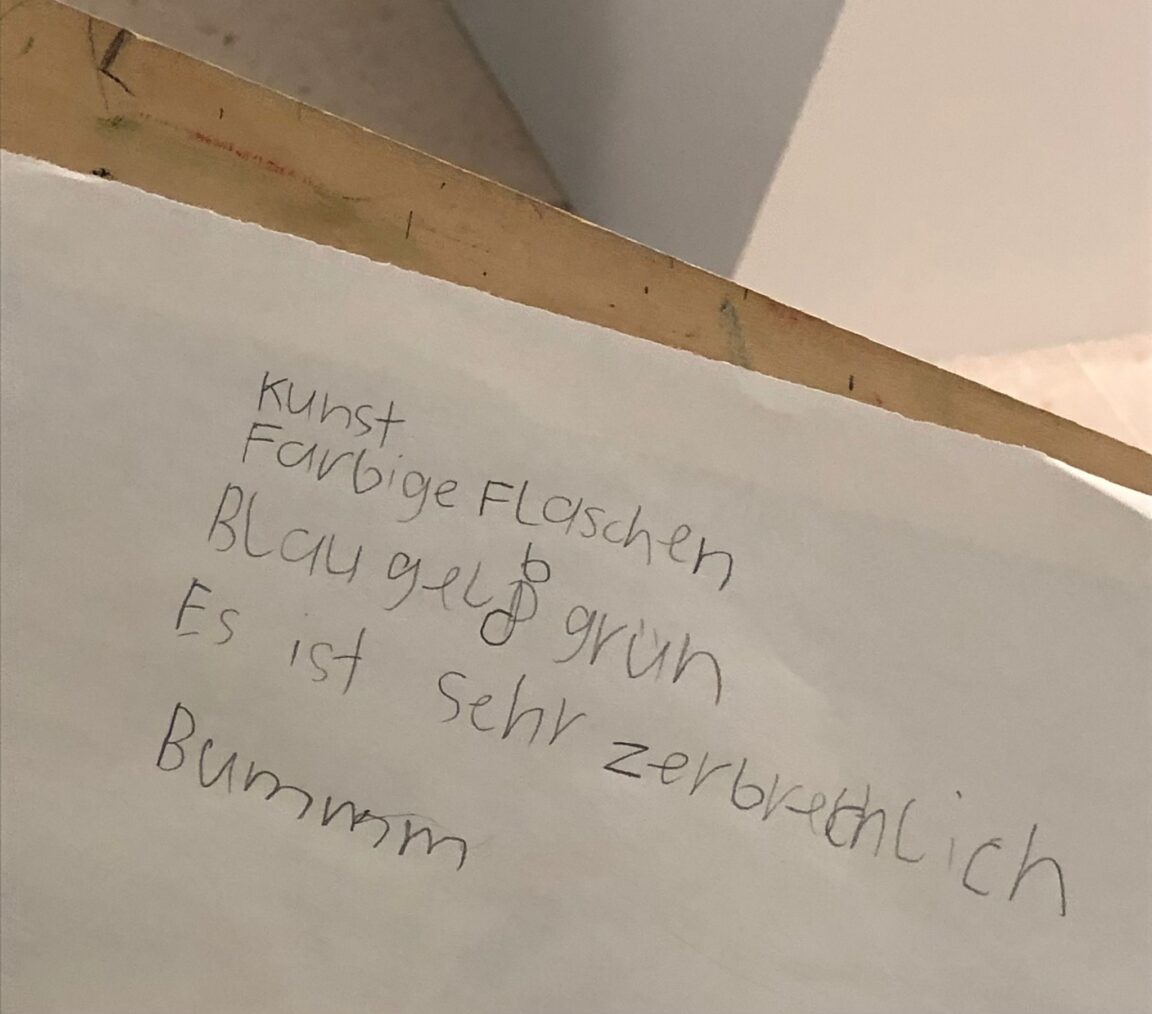 Kunst
Farbige Flaschen
Blau gelb grün
Es ist sehr zerbrechlich
Bummmm